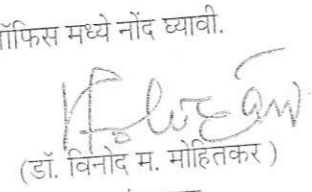 ऑफिस मध्ये नोंद घ्यावी.
(डॉ. विनोद म. मोहितकर )